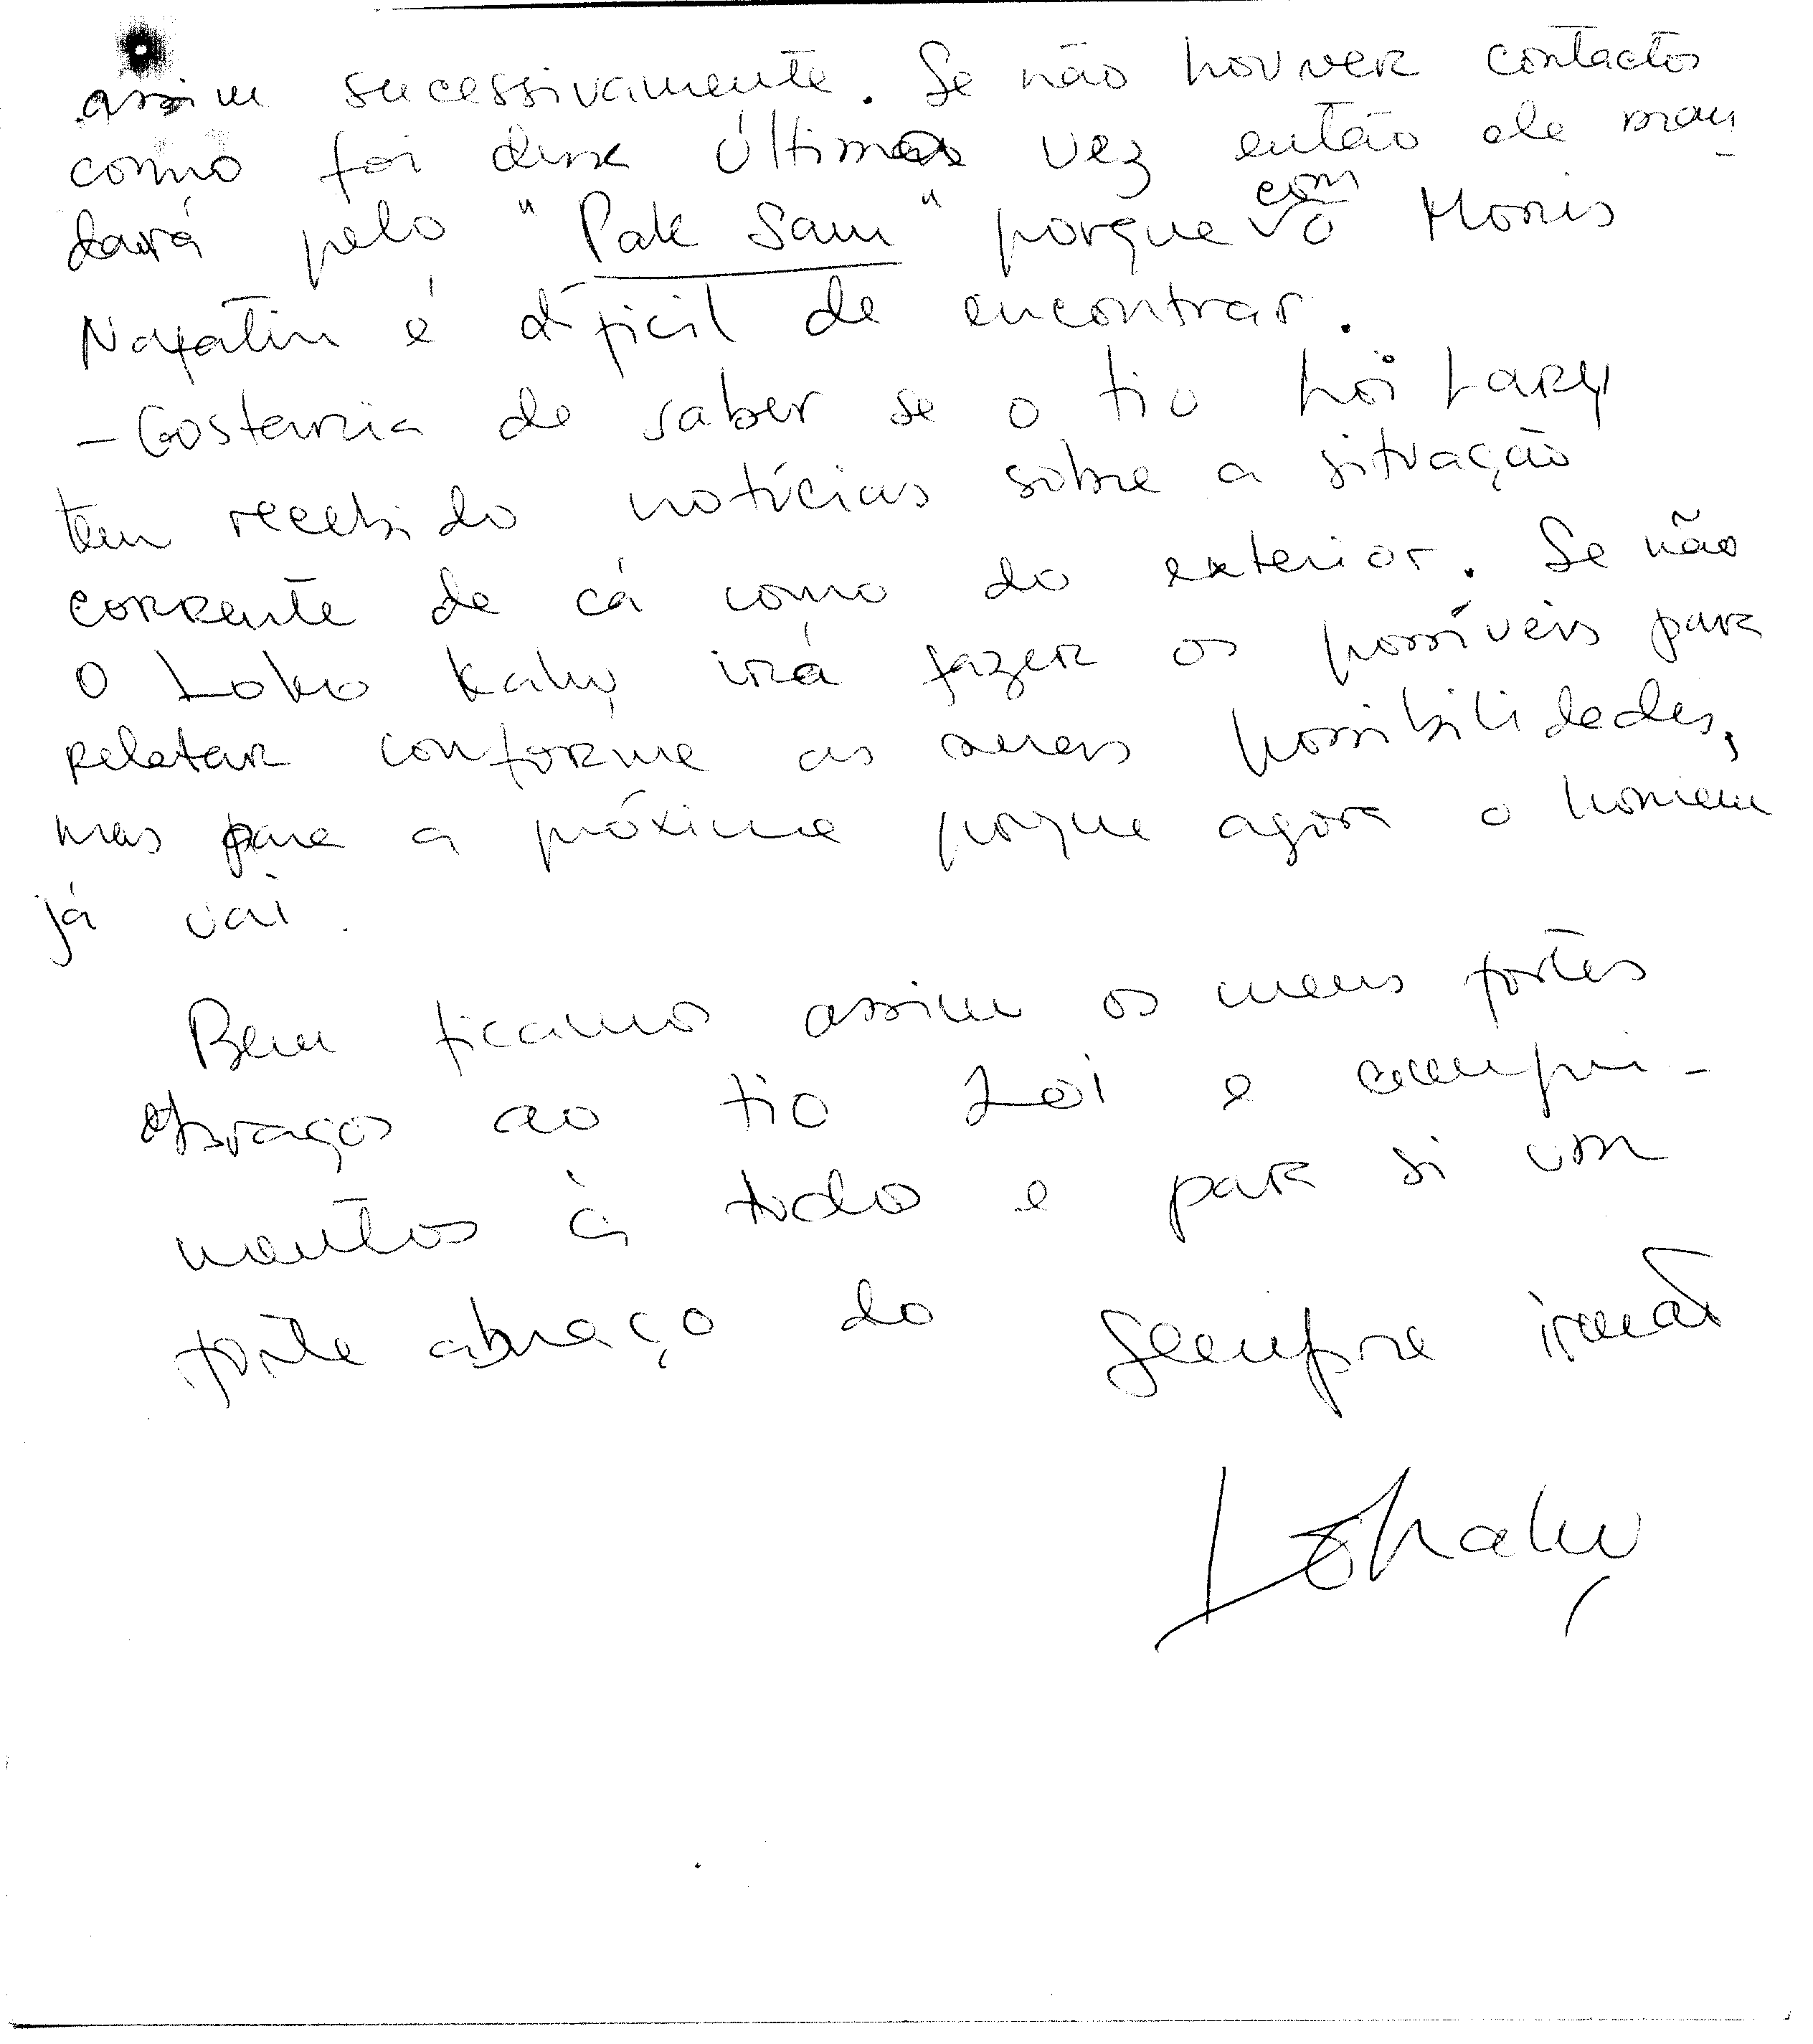 assim sucessivamente. Se não houver contactos
como foi disse última vez então ele man-
dará pelo "Pak Sam" porque com o Moris
Nafatin é dificil de encontrar.
- Gostaria de saber se o tio Loi Lary
tem recebido notícias sobre a situação
corrente de cá como do exterior. Se não
o Loko Kaly irá fazer os possíveis para
relatar conforme as suas possibilidades,
mas para a próxima porque agora o homem
já vai.
Bem ficamos assim os meus fortes
abraços ao tio Loi e cumpri-
mentos à todos e para si um
forte abraço do sempre irmão